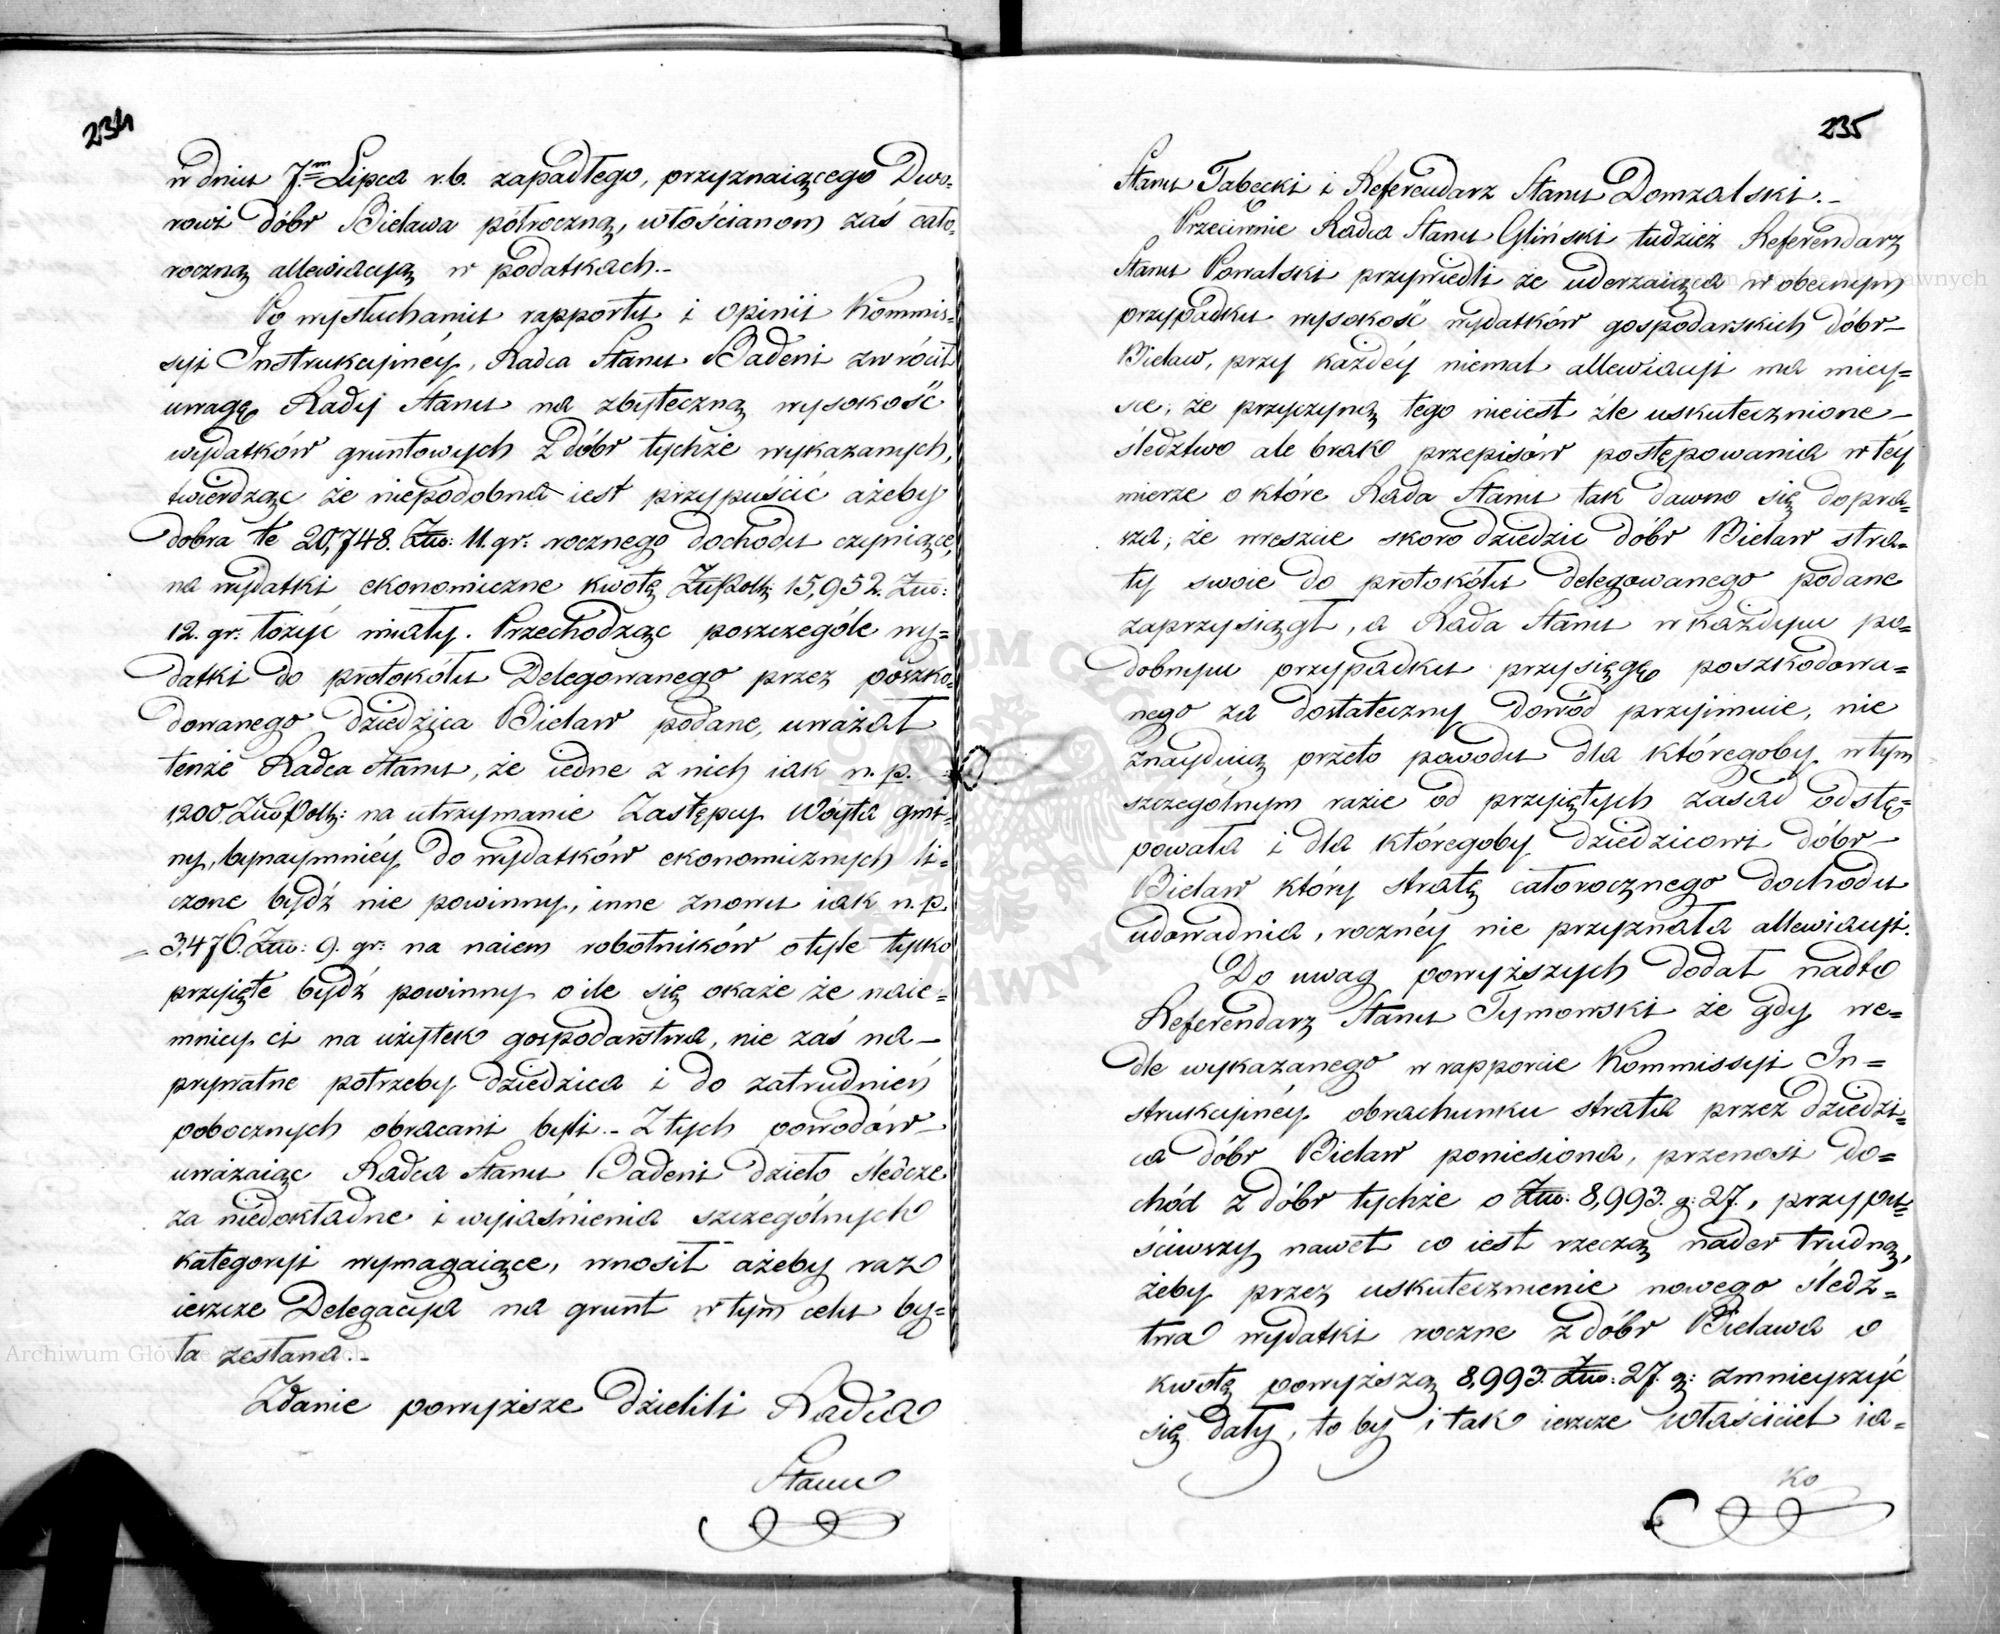 234
w dniu 7.m Lipca r.b. zapadłego, przyznaiącego Dwo-
rowi dóbr Bielawa półroczną, włościanom zaś cało-
roczną allewiacyą w podatkach.-
Po wysłuchaniu rapportu i opinii Kommis-
syi Instrukcyinéy, Radca Stanu Badeni zwrócił
uwagę Rady Stanu na zbyteczną wysokość
wydatków gruntowych z dóbr tychże wykazanych,
twierdząc że niepodobna iest przypuścić ażeby
dobra te 20,748. Złło: 11. gr: rocznego dochodu czyniące,
na wydatki ekonomiczne kwotę ZłłPolk: 15,952. Złło:
12. gr: łożyć miały. Przechodząc poszczególe wy=
datki do protokółu Delegowanego przez poszko-
dowanego dziedzica Bielaw podane, uważał
tenże Radca Stanu, że iedne z nich iak n.p.
1,200. ZłłoPolk: na utrzymanie Zastępcy Wóyta gmi-
ny, bynaymniéy do wydatków ekonomicznych li=
czone bydź nie powinny, inne znowu iak n.p.
= 3,476. Złło: 9. gr: na naiem robotników o tyle tylko
przyięte bydź powinny o ile się okaże że naie=
mnicy ci na użytek gospodarstwa, nie zaś na -
prywatne potrzeby dziedzica i do zatrudnień
pobocznych obracani byli.- Z tych powodów
uważaiąc Radca Stanu Badeni dzieło śledcze
za niedokładne i wyiaśnienia szczególnych
kategoryi wymagaiące, wnosił ażeby raz
ieszcze Delegacya na grunt w tym celu by=
ła zesłana.-
Zdanie powyższe dzielili Radca
Stanu
235
Stanu Tabęcki i Referendarz Stanu Domzalski.-
Przeciwnie Radca Stanu Gliński tudzież Referendarz
Stanu Powalski przywiedli że uderzaiąca w obecnym
przypadku wysokość wydatków gospodarskich dóbr -
Bielaw, przy każdéy niemal allewiacyi ma miey=
sce; że przyczyną tego nieiest źle uskutecznione -
śledztwo ale brak przepisów postępowania w téy
mierze o które Rada Stanu tak dawno się dopra-
sza; że wreszcie skoro dziedzic dóbr Bielaw stra-
ty swoie do protokółu delegowanego podane
zaprzysiągł, a Rada Stanu w każdym po=
dobnym przypadku przysięgę poszkodowa=
nego za dostateczny dowód przyimuie, nie
znayduią przeto powodu dla któregoby w tym
szczególnym razie od przyiętych zasad odstę=
powała i dla któregoby dziedzicowi dóbr -
Bielaw który stratę całorocznego dochodu
udowadnia, rocznéy nie przyznała allewiacyi.
Do uwag powyższych dodał nadto
Referendarz Stanu Tymowski że gdy we=
dle wykazanego w rapporcie Kommissyi In=
strukcyinéy obrachunku strata przez dziedzi-
ca dóbr Bielaw poniesiona, przenosi do=
chód z dóbr tychże o Złło: 8,993. g: 27., przypu-
ściwszy nawet co iest rzeczą nader trudną,
żeby przez uskutecznienie nowego śledz=
twa wydatki roczne z dóbr Bielawa o
kwotę powyższą 8,993. Złło: 27. g: zmnieyszyć
się dały, to by i tak ieszcze właściciel ia=
ko
Archiwum Główne Akt Dawnych